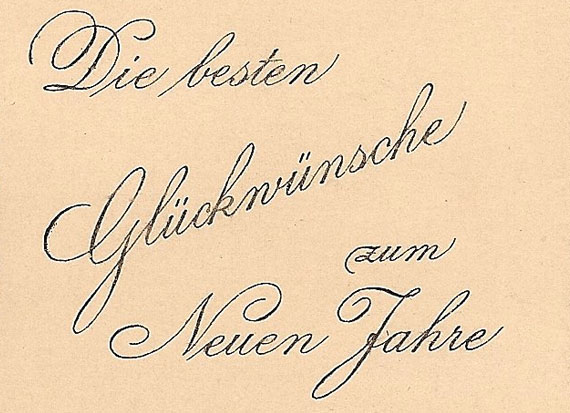 Die besten
Glückwünsche
zum
Neuen Jahre